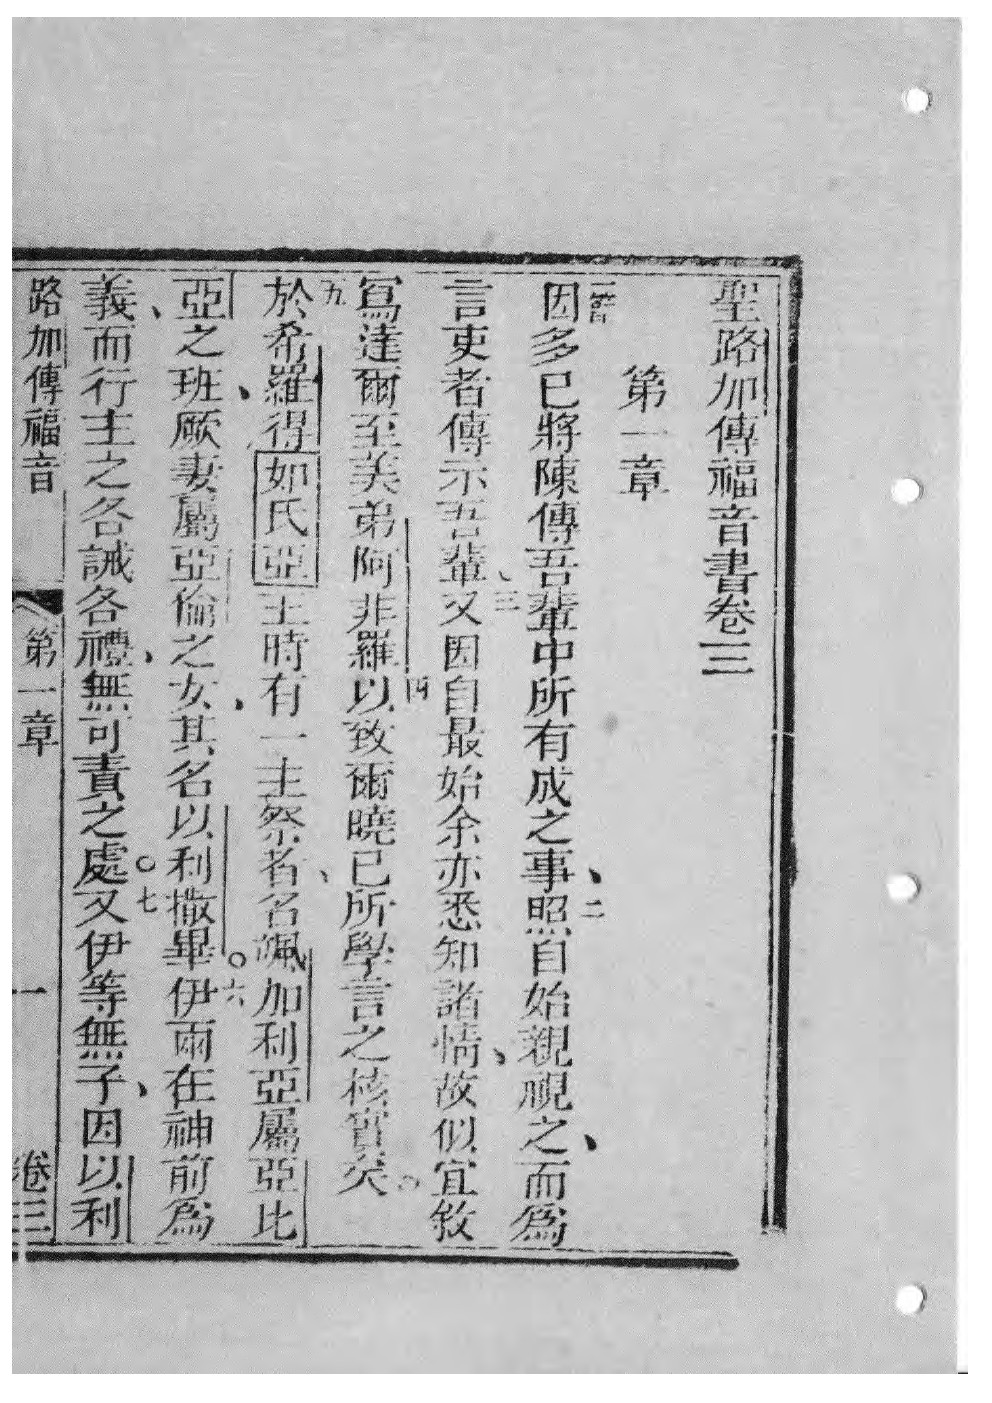 聖路加傳福音書卷三
第一章
一節因多已將陳傳吾輩中所有成之事、二照自始親視之、而爲
言吏者傳示吾輩、三又因自最始余亦悉知諸情、故似宜敘
寫達爾至美弟阿非羅、四以致爾曉已所學言之核實矣。
五於希羅得如氏亞王時有一主祭者、名颯加利亞屬亞比
亞之班、厥妻屬亞倫之女、其名以利撒畢。六伊兩在神前爲
義、而行主之各誡各禮、無可責之處。七又伊等無子、因以利
路加傳福音 第一章 一 卷三